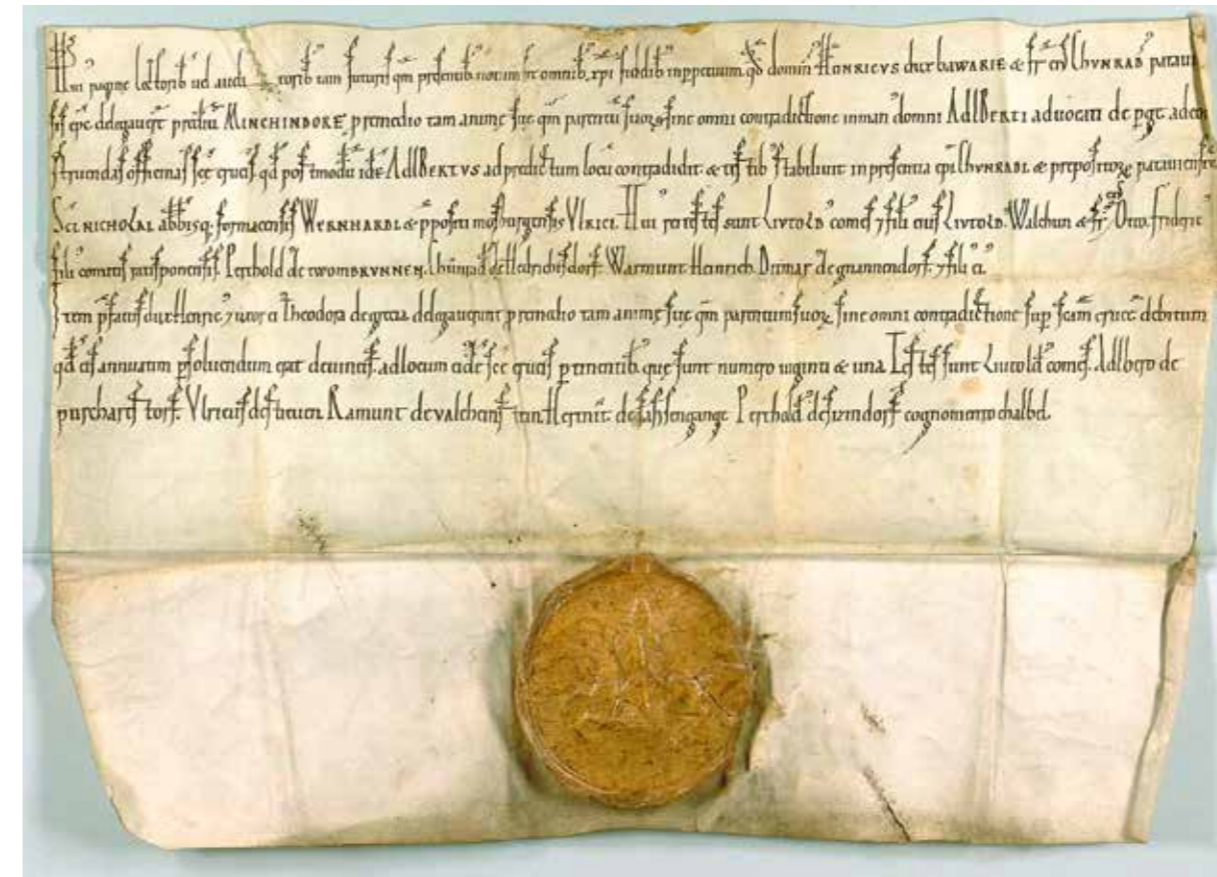 Hui' pagine lectorib' ud audi torib' tam futuris qm presentib' notum sit omnib. xpi fidelib' inppetuum. qd domin' HENRICVS dux bawarie & fr ei' Chvnrad' patavi
sis epc delegaverunt prediu MINCHINDORF premedio tam anime sue qm parentu suorum sine omni contradictione inman' domni Adlberti advocati de pge adcon
struendas officinas sce crucis. qd postmodu ide Adlbertvs ad predictum locu contradidit. & testib' stabilivit in presentia epi Chvnradi. & prepositorum pataviensis
Sci Nicholai. abbisq. formacensis Wernhardi. & ppositi mosburgensis Vlrici. Hui' rei testes sunt Livtold' comes 7 fili' eius Livtold'. Walchun & fr ei' Otto. frideric'
fili' comitis ratisponensis. Perthold' de twombrvnnen. Chunrad' de Hedrichisdorf. Warmunt. Heinrich. Dimar de gnannendorf. 7 filii ei'.
Item pfatus dux Henric' 7 uxor ei' Theodora de grecia delegaverunt premedio tam anime sue qm parentum suorum sine omni contradictione sup scam cruce debitum
qd eis annuatim psolvendum erat de vineis. ad locum eide sce crucis pertinentib. que sunt numero viginti & una. Testes sunt Livtold' comes. Adlbero de
purchartstorf. Vlricus de steven. Ramunt. de valchenstein. Hernit. de Sahsengange. Perthold' de sizindorf cognomento chalbel.